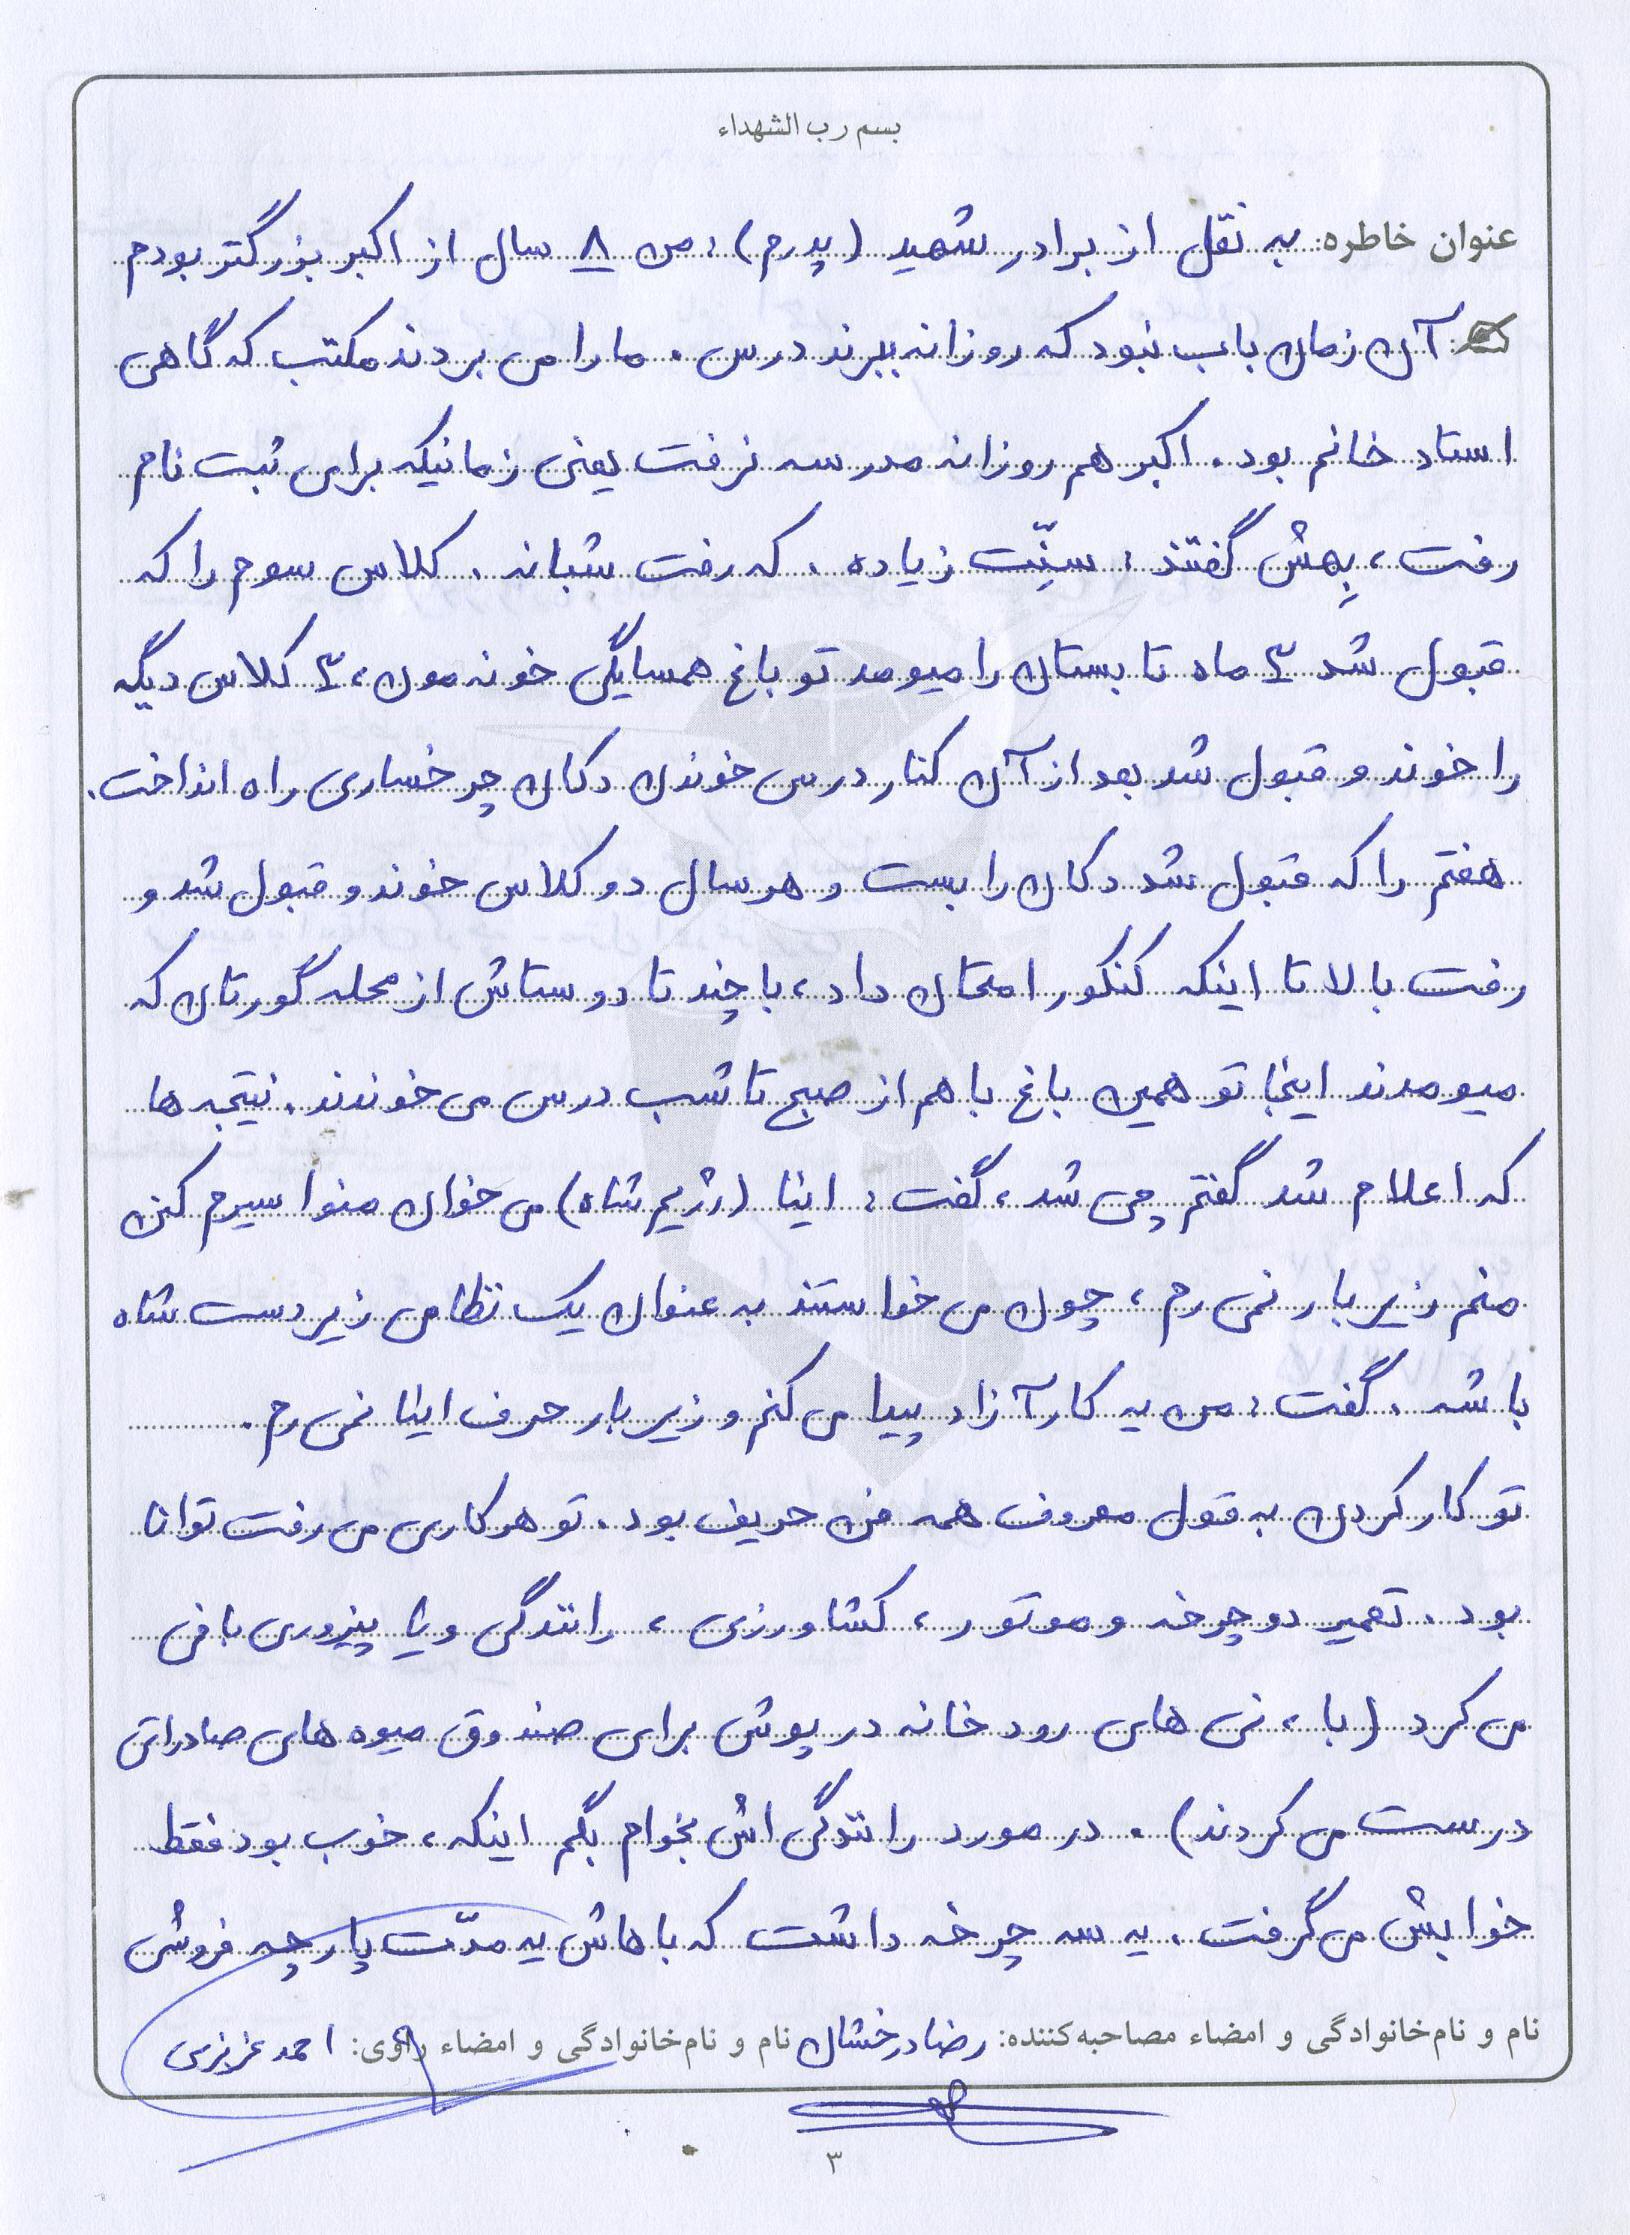 بسم رب الشهداء
عنوان خاطره: به نقل از برادر شهید (پدرم): من ۸ سال از اکبر بزرگتر بودم
آن زمان باب نبود که روزانه ببرند درس. ما را می بردند مکتب که گاهی
استاد خانم بود. اکبر هم روزانه مدرسه نرفت یعنی زمانیکه برای ثبت نام
رفت، بِهِش گفتند: سنّت زیاده. که رفت شبانه. کلاس سوم را که
قبول شد ۳ ماه تابستان را میومد تو باغ همسایگی خونه مون، ۳ کلاس دیگه
را خوند و قبول شد بعد از آن کنار درس خوندن دکان چرخساری راه انداخت.
هفتم را که قبول شد دکان را بست و هر سال دو کلاس خوند و قبول شد و
رفت بالا تا اینکه کنکور امتحان داد، با چند تا دوستاش از محله گورتان که
میومدند اینجا تو همین باغ با هم از صبح تا شب درس می خوندند. نتیجه ها
که اعلام شد گفتم چی شد، گفت: اینا (رژیم شاه) می خوان منوا سیرم کنن
منم زیر بار نمی رم، چون می خواستند به عنوان یک نظامی زیر دست شاه
باشه. گفت: من یه کار آزاد پیدا می کنم و زیر بار حرف اینا نمی رم.
تو کار کردن به قول معروف همه فن حریف بود. تو هر کاری می رفت توانا
بود. تعمیر دوچرخه و موتور، کشاورزی، رانندگی و یا پیزوری بافی
می کرد (با، نی های رودخانه درپوش برای صندوق میوه های صادراتی
درست می کردند). در مورد رانندگی اش بخوام بگم اینکه، خوب بود فقط
خوابش می گرفت. یه سه چرخه داشت که باهاش یه مدّت پارچه فروشی
نام و نام خانوادگی و امضاء مصاحبه کننده: رضا درخشان نام و نام خانوادگی و امضاء راوی: احمد عزیزی
۳